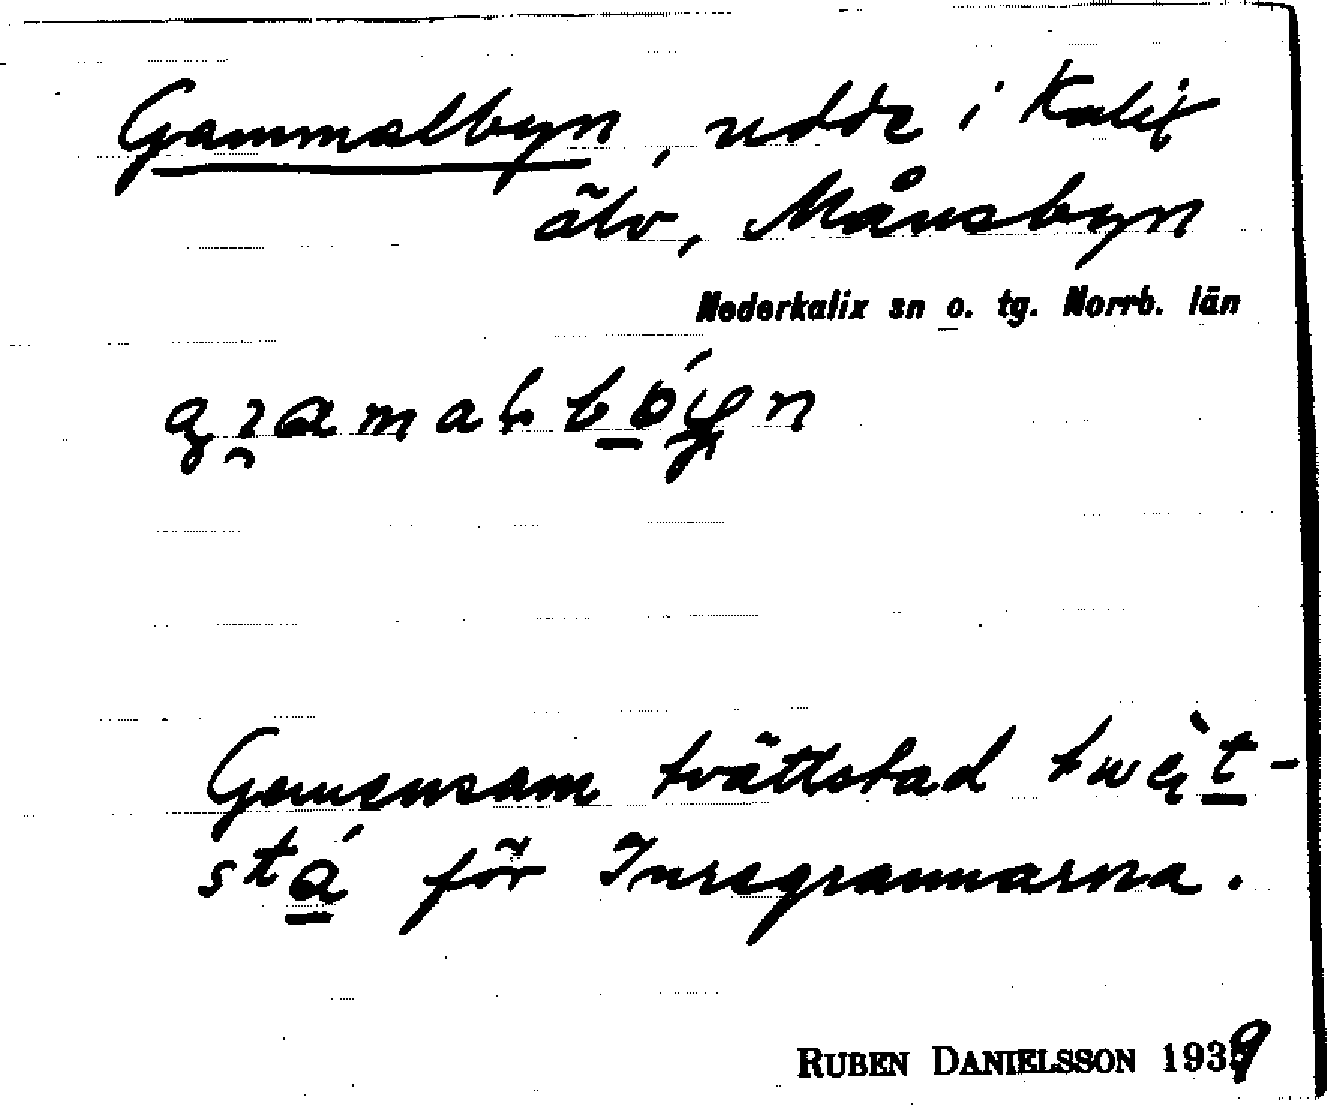 Gammalbyn, udde i Kalix
älv, Månsbyn
Nederkalix sn o. tg. Norrb. län
Gemensam tvättstad
för Inregrannarna.
RUBEN DANIELSSON 1939